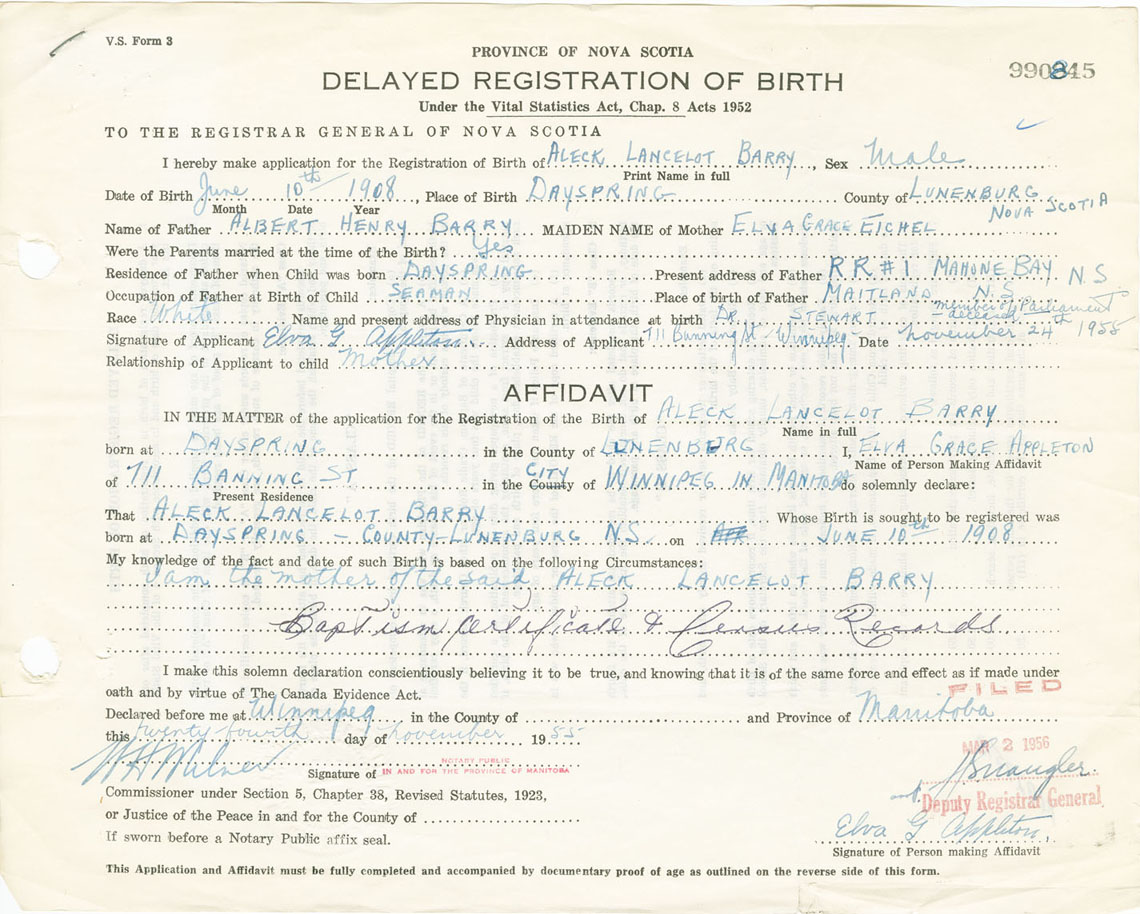 V.S. Form 3
PROVINCE OF NOVA SCOTIA
DELAYED REGISTRATION OF BIRTH
990845
Under the Vital Statistics Act, Chap. 8 Acts 1952
TO THE REGISTRAR GENERAL OF NOVA SCOTIA
I hereby make application for the Registration of Birth of ALECK LANCELOT BARRY, Sex Male
Print Name in full
Date of Birth June 10th 1908, Place of Birth DAYSPRING County of LUNENBURG
Month Date Year NOVA SCOTIA
Name of Father ALBERT HENRY BARRY MAIDEN NAME of Mother ELVA GRACE EICHEL
Were the Parents married at the time of the Birth? Yes
Residence of Father when Child was born DAYSPRING Present address of Father RR #1 MAHONE BAY N.S
Occupation of Father at Birth of Child SEAMAN Place of birth of Father MAITLAND N.S.
member of Parliament
Race White Name and present address of Physician in attendance at birth DR. STEWART - deceased
Signature of Applicant Elva G Appleton Address of Applicant 711 Banning St - Winnipeg Date november 24th 1955
Relationship of Applicant to child Mother
AFFIDAVIT
IN THE MATTER of the application for the Registration of the Birth of ALECK LANCELOT BARRY
Name in full
born at DAYSPRING in the County of LUNENBURG I, ELVA GRACE APPLETON
Name of Person Making Affidavit
of 711 BANNING ST in the County CITY of WINNIPEG IN MANITOBA do solemnly declare:
Present Residence
That ALECK LANCELOT BARRY Whose Birth is sought to be registered was
born at DAYSPRING - COUNTY-LUNENBURG N.S. on JUNE 10th 1908
My knowledge of the fact and date of such Birth is based on the following Circumstances:
I am the mother of the said ALECK LANCELOT BARRY
Baptism Certificate & Census Records
I make this solemn declaration conscientiously believing it to be true, and knowing that it is of the same force and effect as if made under
oath and by virtue of The Canada Evidence Act.
FILED
Declared before me at Winnipeg in the County of and Province of Manitoba
this twenty fourth day of november 1955
MAR 2 1956
W H Milner
NOTARY PUBLIC
Signature of IN AND FOR THE PROVINCE OF MANITOBA
Commissioner under Section 5, Chapter 38, Revised Statutes, 1923,
Deputy Registrar General
or Justice of the Peace in and for the County of
Elva G Appleton
If sworn before a Notary Public affix seal.
Signature of Person making Affidavit
This Application and Affidavit must be fully completed and accompanied by documentary proof of age as outlined on the reverse side of this form.